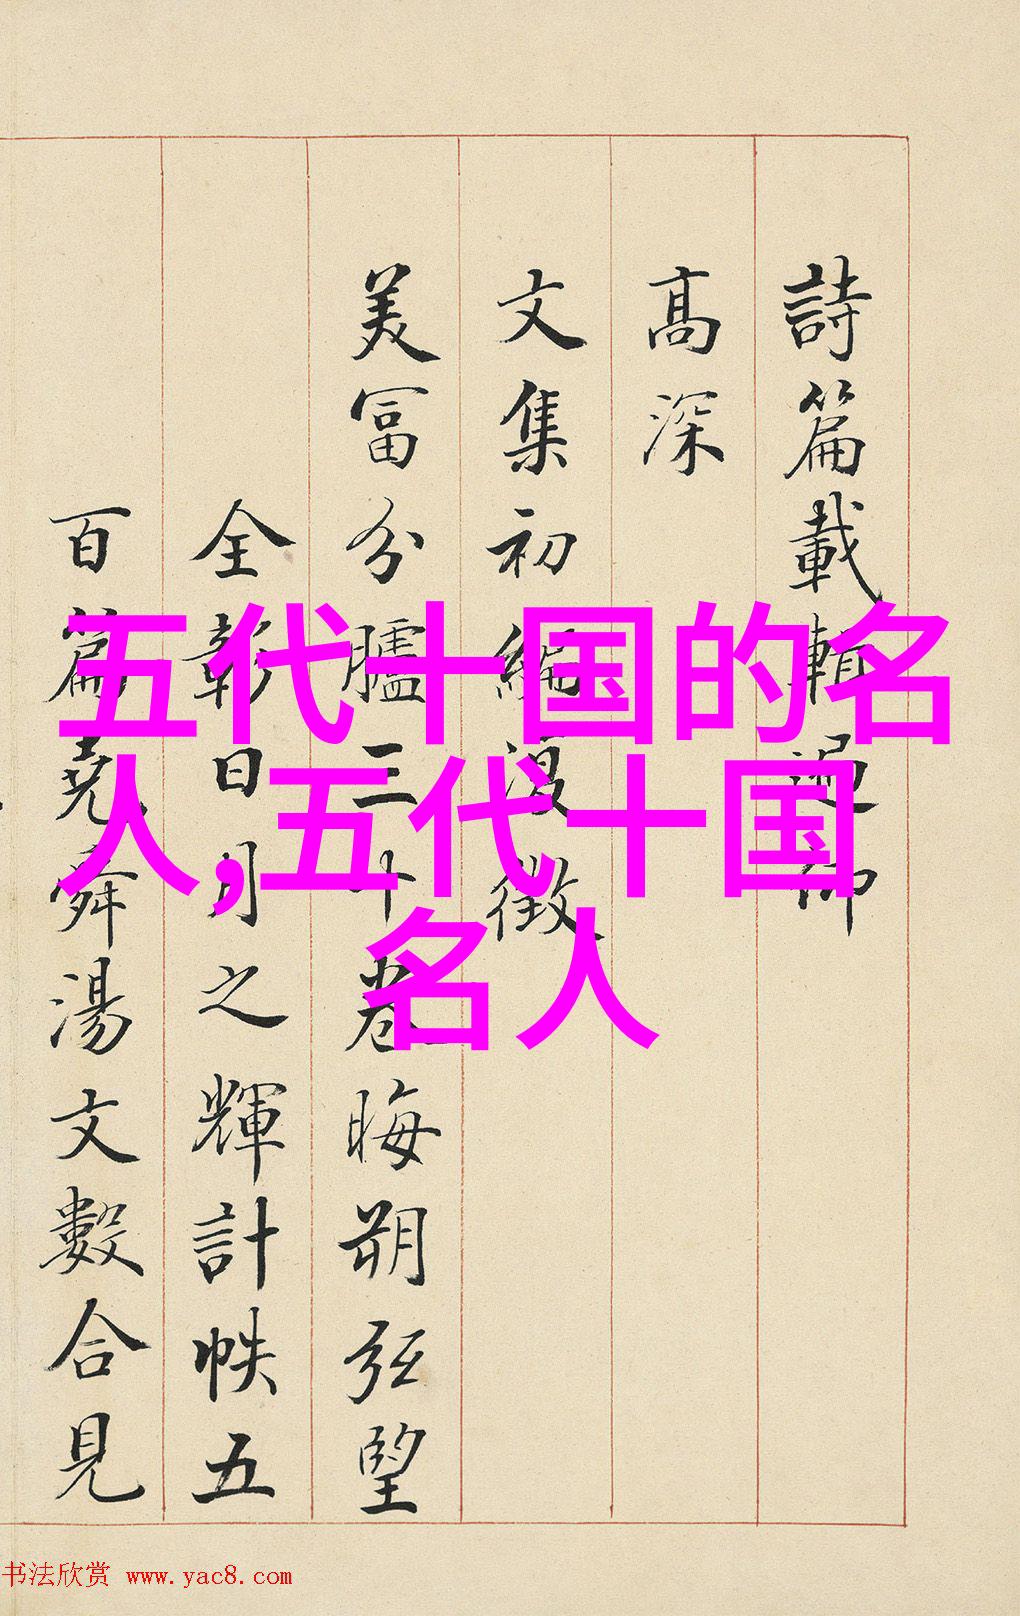 詩篇載輯過仰
高深
文集初編復徵
美富分臚三十卷晦朔弦望
全彰日月之輝計帙五
百篇堯舜湯文數合見
五代十国的名
人,五代十国
名人
书法欣赏 www.yac8.com